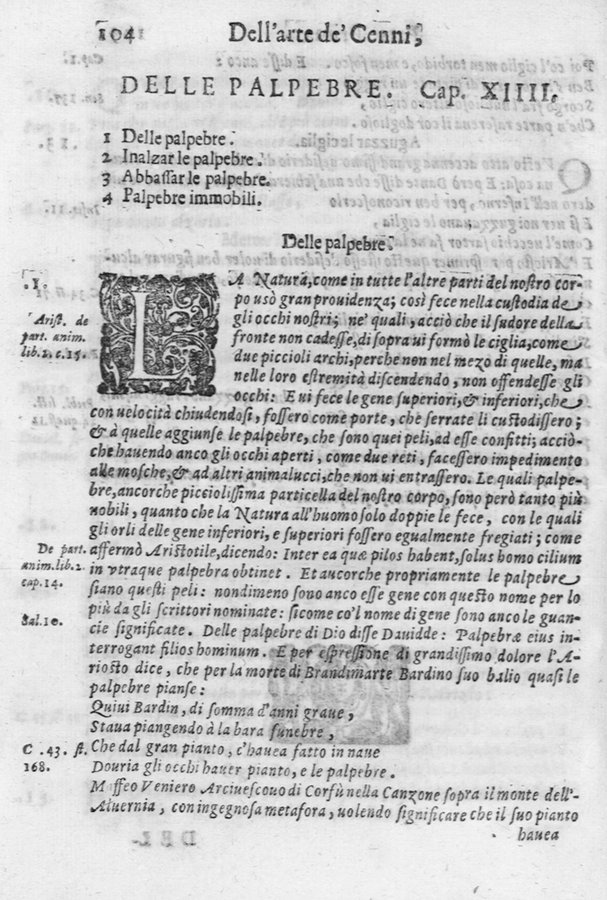 104 Dell'arte de' Cenni,
DELLE PALPEBRE. Cap. XIIII.
1 Delle palpebre.
2 Inalzar le palpebre.
3 Abbassar le palpebre.
4 Palpebre immobili.
Delle palpebre.
.1.
LA Natura, come in tutte l'altre parti del nostro cor-
po usò gran prouidenza; così fece nella custodia de
Arist. de
part. anim.
lib. 2. c. 15.
gli occhi nostri; ne' quali, acciò che il sudore della
fronte non cadesse, di sopra ui formò le ciglia, come
due piccioli archi, perche non nel mezo di quelle, ma
nelle loro estremità discendendo, non offendesse gli
occhi: E ui fece le gene superiori, & inferiori, che
con uelocità chiudendosi, fossero come porte, che serrate li custodissero;
& à quelle aggiunse le palpebre, che sono quei peli, ad esse confitti; acciò-
che hauendo anco gli occhi aperti, come due reti, facessero impedimento
alle mosche, & ad altri animalucci, che non ui entrassero. Le quali palpe-
bre, ancorche picciolissima particella del nostro corpo, sono però tanto più
nobili, quanto che la Natura all'huomo solo doppie le fece, con le quali
gli orli delle gene inferiori, e superiori fossero egualmente fregiati; come
De part.
anim. lib. 2.
cap. 14.
affermò Aristotile, dicendo: Inter ea quæ pilos habent, solus homo cilium
in vtraque palpebra obtinet. Et aucorche propriamente le palpebre
siano questi peli: nondimeno sono anco esse gene con questo nome per lo
più da gli scrittori nominate: sicome co'l nome di gene sono anco le guan-
Sal. 10.
cie significate. Delle palpebre di Dio disse Dauidde: Palpebræ eius in-
terrogant filios hominum. E per espressione di grandissimo dolore l'A-
riosto dice, che per la morte di Brandimarte Bardino suo balio quasi le
palpebre pianse:
Quiui Bardin, di somma d'anni graue,
Staua piangendo à la bara funebre,
C. 43. st.
168.
Che dal gran pianto, c'hauea fatto in naue
Douria gli occhi hauer pianto, e le palpebre.
Maffeo Veniero Arciuescouo di Corfù nella Canzone sopra il monte dell'-
Aluernia, con ingegnosa metafora, uolendo significare che il suo pianto
hauea